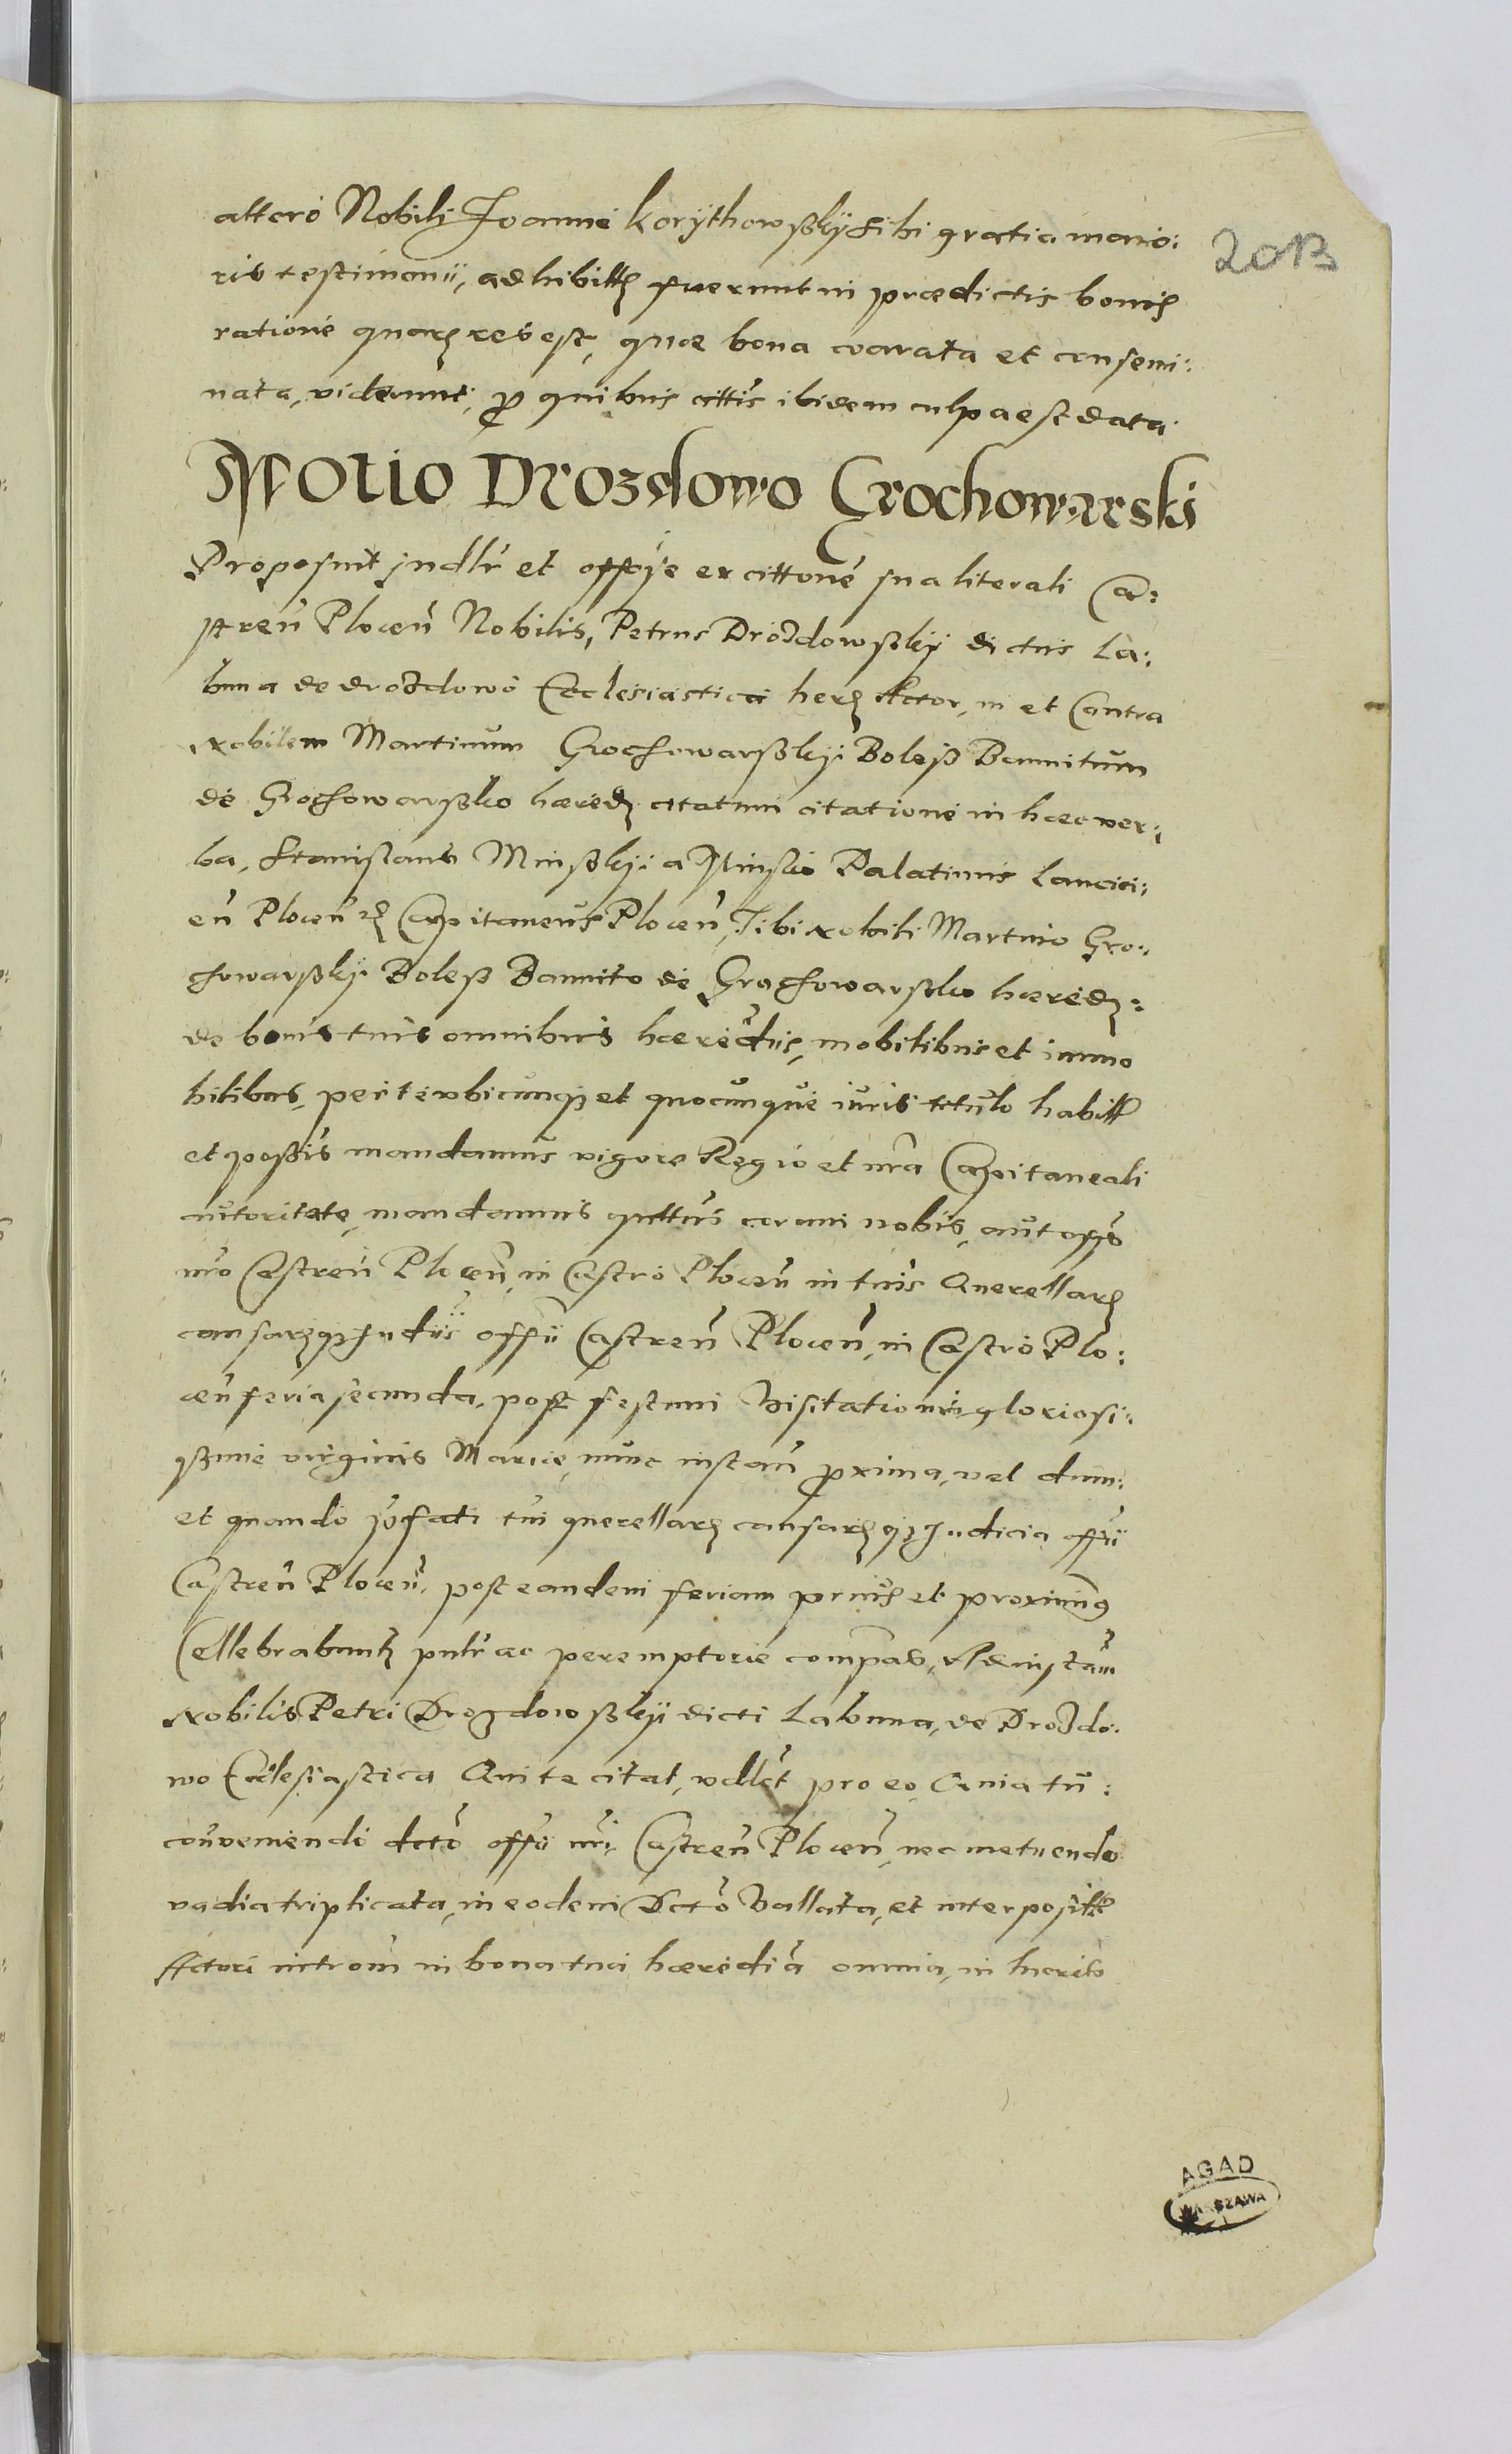 altero Nobili Joanne Korÿthowsßkÿ sibi gratia maio:
ris testimonii, adhibitt fuerunt in prædictis bonis
ratione quar[um] res est, quæ bona coarata et consemi:
nata, viderunt, p[ro] quibus cittis ibidem culpa est data
Motio Drozdowo Grochowarski
Proposuit judlr et offose ex cittone sua literali Ca:
stren Plocen Nobilis, Petrus Drozdowsßkÿ dictus La:
buna de drozdowo Ecclesiastica hers Actor, in et Contra
Nobilem Martinum Grochowarsßkÿ Boleß Bannitum
de Grochowarsßko hæred citatum citatione in hæc ver:
ba, Stanislaus Minsßkÿ a Minsko Palatinus Lancici:
en Plocen Capitaneus Plocen, Tibi Nobili Martino Gro:
chowarsßkÿ Boleß Bannito de Grochowarsßko hæred:
de bonis tuis omnibus hærediis, mobilibus et immo
bilibus, per te vbicunq et quocunque iuris titulo habitt
et poßis mandamus vigore Regio et nra Capitaneali
autoritate, mandamus quttus coram nobis, aut offo
nro Castren Plocen, in Castro Plocen in tuis Querellar
causarq Judiis offii Castren Plocen, in Castro Plo:
cen feria secunda, post festum Visitationis gloriosi:
ßime virginis Mariæ, nunc instan proxima, vel dum:
et quando pfati tui querellar causarq Judicia offii
Castren Plocen, post eandem feriam prius et proximius
Cellebrabunt pntr ac peremptorie compas, Ad instam
Nobilis Petri Drozdowsßkÿ dicti Labuna, de Drozdo:
wo Ecclesiastica Qui te citat, vdlct pro eo, Quia tu:
conveniendo dcto offii nri Castren Plocen, nec metuendo
vadia triplicata, in eodem Dcto Vallata, et interpositt
Actori introm in bona tua hæredia omnia, in hæreis
2013
AGAD
WARSZAWA